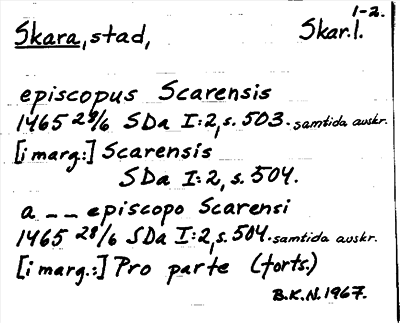 1-2.
Skara, stad, Skar.l.
episcopus Scarensis
1465 28/6 SDa I:2, s. 503. samtida avskr.
[i marg:] Scarensis
SDa I:2, s. 504.
a _ _ episcopo Scarensi
1465 28/6 SDa I:2, s. 504. samtida avskr.
[i marg.:] Pro parte (forts.)
B.K.N. 1967.